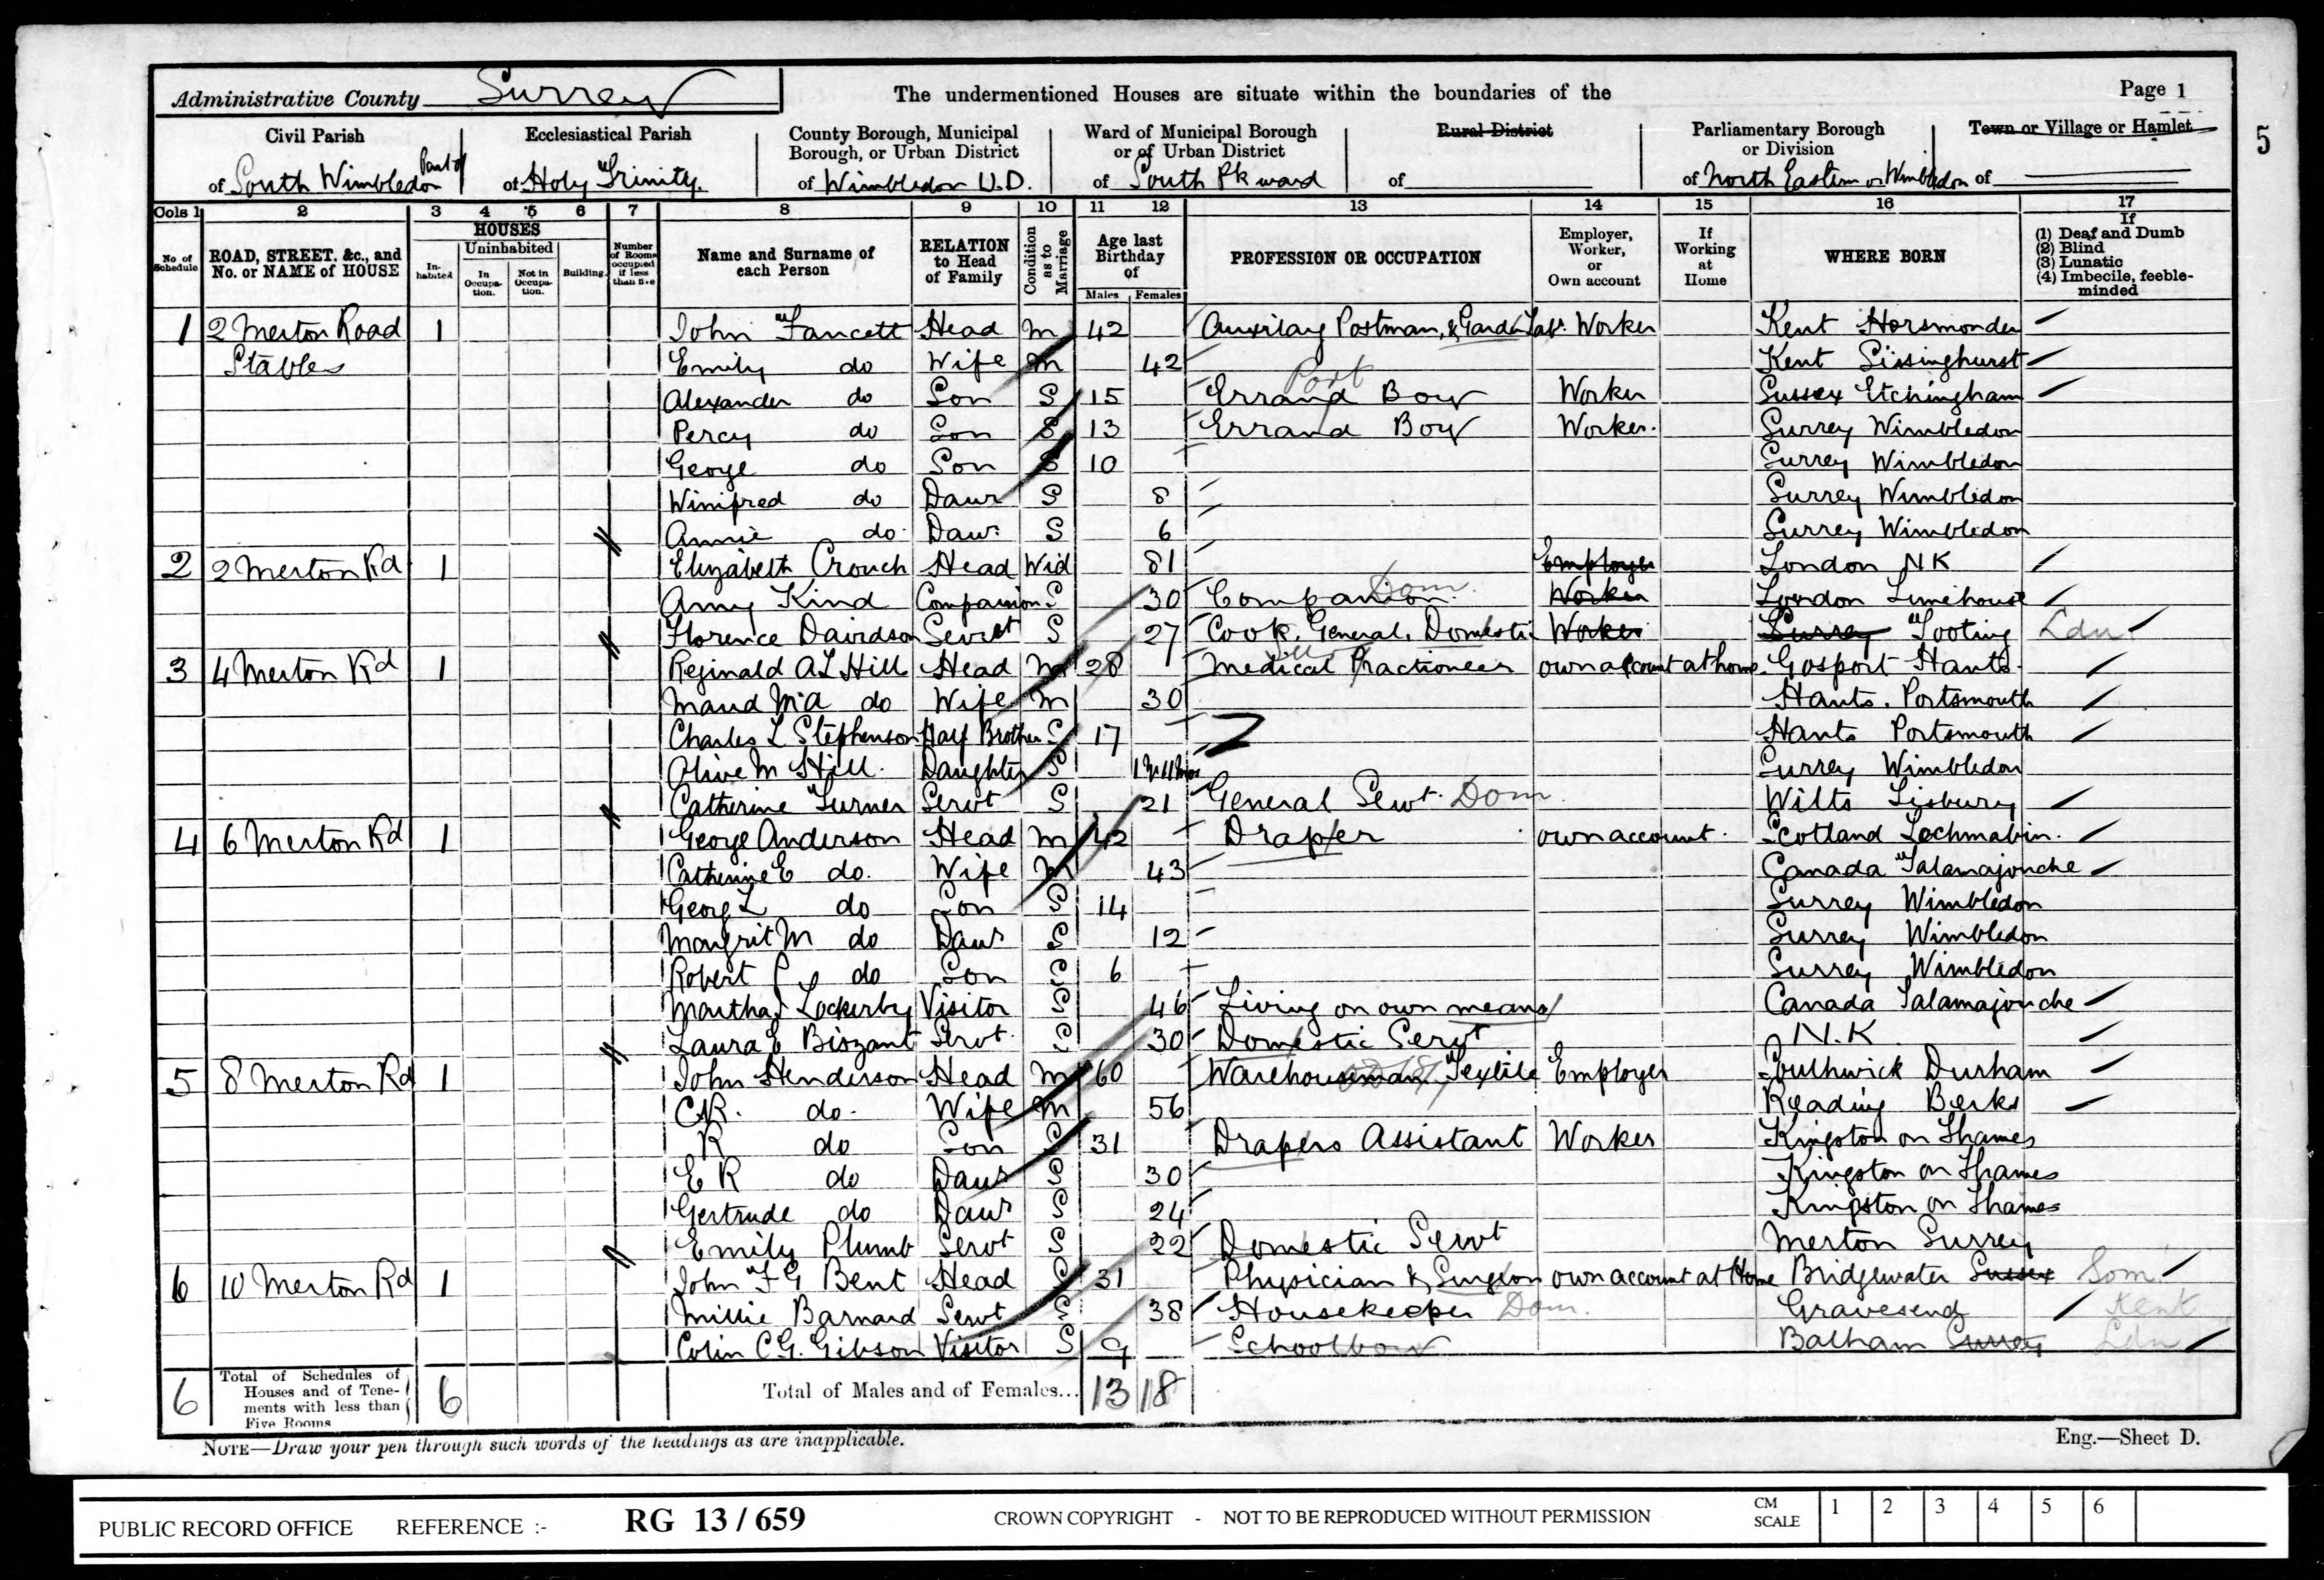 Administrative County Surrey The undermentioned Houses are situate within the boundaries of the Page 1
5
Civil Parish Ecclesiastical Parish County Borough, Municipal Borough, or Urban District Ward of Municipal Borough or of Urban District Rural District Parliamentary Borough or Division Town or Village or Hamlet
of South Wimbledon Part of of Holy Trinity. of Wimbledon U.D. of South Pk ward of of North Eastern or Wimbledon of
Cols 1 2 3 4 5 6 7 8 9 10 11 12 13 14 15 16 17
No of Schedule ROAD, STREET, &c., and No. or NAME of HOUSE HOUSES Inhabited Uninhabited In Occupation. Not in Occupation. Building. Number of Rooms occupied if less than five Name and Surname of each Person RELATION to Head of Family Condition as to Marriage Age last Birthday of Males Females PROFESSION OR OCCUPATION Employer, Worker, or Own account If Working at Home WHERE BORN If (1) Deaf and Dumb (2) Blind (3) Lunatic (4) Imbecile, feeble-minded
1 2 Merton Road 1 John Fancett Head M 42 Auxilary Postman, & Garden Lab. Worker Kent Horsmonden
Stables Emily do Wife M 42 Kent Sissinghurst
Alexander do Son S 15 Errand Boy Port Worker Sussex Etchingham
Percy do Son S 13 Errand Boy Worker. Surrey Wimbledon
George do Son S 10 Surrey Wimbledon
Winifred do Daur S 8 Surrey Wimbledon
Annie do Daur S 6 Surrey Wimbledon
2 2 Merton Rd 1 Elizabeth Crouch Head Wid 81 Employer London NK
Amy Kind Companion S 30 Companion Dom. Worker London Limehouse
Florence Davidson Servt S 27 Cook, General, Domestic Worker Surrey Tooting Ldn
3 4 Merton Rd 1 Reginald A L Hill Head M 28 Medical Practioneer own account at home Gosport Hants
Maud M A do Wife M 30 Hants. Portsmouth
Charles L Stephenson Half Brother S 17 Hants Portsmouth
Olive M Hill. Daughter S 1 Yr 11 Mos Surrey Wimbledon
Catherine Turner Servt S 21 General Servt. Dom. Wilts Tisbury
4 6 Merton Rd 1 George Anderson Head M 42 Draper own account. Scotland Lochmabin.
Catherine E do. Wife M 43 Canada Talamajouche
Georg L do Son S 14 Surrey Wimbledon
Margrit M do Daur S 12 Surrey Wimbledon
Robert do Son S 6 Surrey Wimbledon
Martha Lockerby Visitor S 46 Living on own means Canada Talamajouche
Laura E Biszant Servt. S 30 Domestic Servt N.K
5 8 Merton Rd 1 John Henderson Head M 60 Warehouseman Textile Employer Southwick Durham
C R. do. Wife M 56 Reading Berks
R do Son S 31 Drapers Assistant Worker Kingston on Thames
E R do Daur S 30 Kingston on Thames
Gertrude do Daur S 24 Kingston on Thames
Emily Plumb Servt S 22 Domestic Servt Merton Surrey
6 10 Merton Rd 1 John F G Bent Head S 31 Physician & Surgeon own account at Home Bridgewater Sussex Som
Millie Barnard Servt S 38 Housekeeper Dom. Gravesend Kent
Colin C G. Gibson Visitor S 9 Schoolboy Balham Surrey Ldn
6 Total of Schedules of Houses and of Tenements with less than Five Rooms 6 Total of Males and of Females... 13 18
NOTE—Draw your pen through such words of the headings as are inapplicable. Eng.—Sheet D.
PUBLIC RECORD OFFICE REFERENCE :- RG 13 / 659 CROWN COPYRIGHT - NOT TO BE REPRODUCED WITHOUT PERMISSION CM SCALE 1 2 3 4 5 6